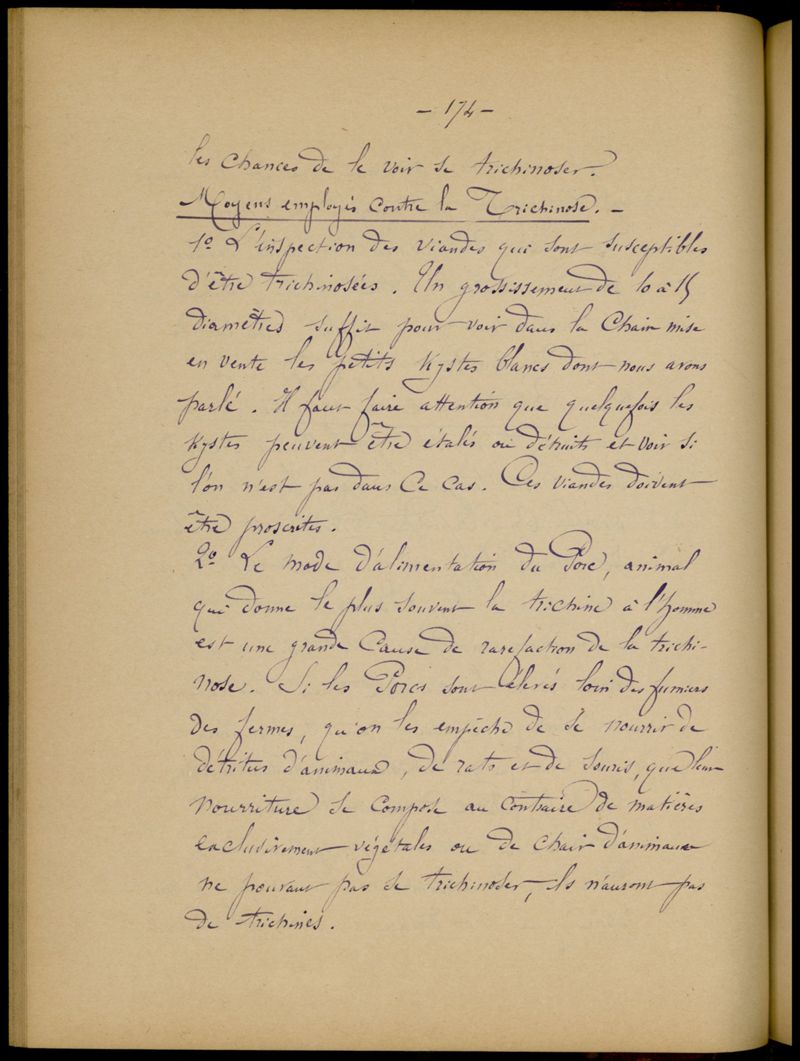 - 174 -
les chances de le voir se trichinoser.
Moyens employés contre la Trichinose. -
1º L'inspection des viandes qui sont susceptibles
d'être trichinosées. Un grossissement de 10 à 15
diamètres suffit pour voir dans la chair mise
en vente les petits kystes blancs dont nous avons
parlé. Il faut faire attention que quelquefois les
kystes peuvent être étalés ou détruits et voir si
l'on n'est pas dans ce cas. Ces viandes doivent
être proscrites.
2º Le mode d'alimentation du Porc, animal
qui donne le plus souvent la trichine à l'homme
est une grande cause de rarefaction de la trichi-
nose. Si les Porcs sont élevés loin des fumiers
des fermes, qu'on les empêche de se nourrir de
détritus d'animaux, de rats et de souris, que leur
nourriture se compose au contraire de matières
exclusivement végétales ou de chair d'animaux
ne pouvant pas se trichinoser, ils n'auront pas
de trichines.